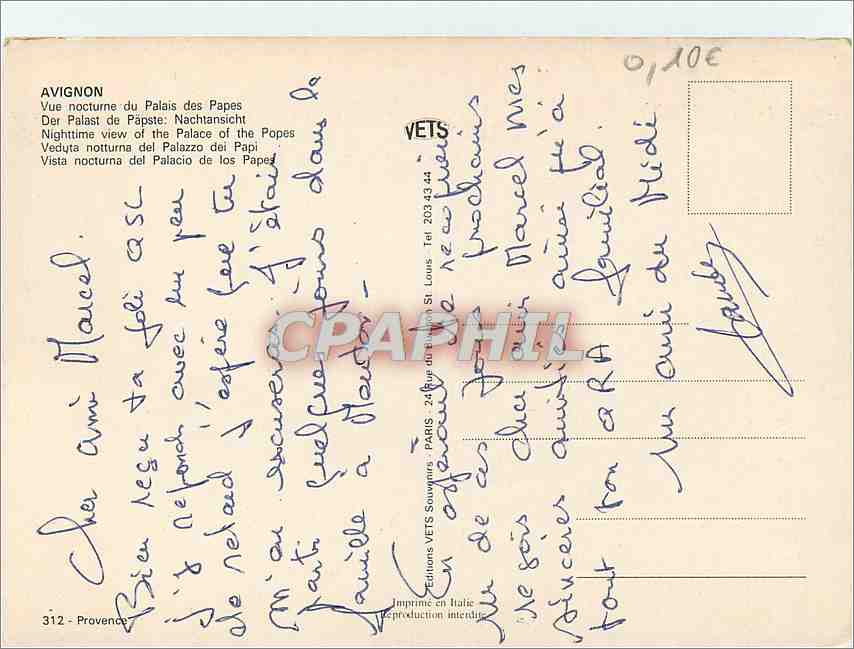 AVIGNON
Vue nocturne du Palais des Papes
Der Palast de Päpste: Nachtansicht
Nighttime view of the Palace of the Popes
Veduta notturna del Palazzo dei Papi
Vista nocturna del Palacio de los Papes
0,10€
VETS
Cher ami Marcel.
Bien reçu ta joli QSL
j'y reponds avec un peu
de retard j'espère que tu
m'en excuseras. J'étais
parti quelque jours dans la
famille a
En espérant te recontrer
un de ces jours prochains
reçois cher ami Marcel mes
sincères amitiés ainsi qu'à
tout ton QRA familial.
un ami du Midi.
Editions VETS Souvenirs - PARIS - 24 Rue du St Louis - Tel 203 43 44
CPAPHIL
312 - Provence
Imprimé en Italie
Reproduction interdite